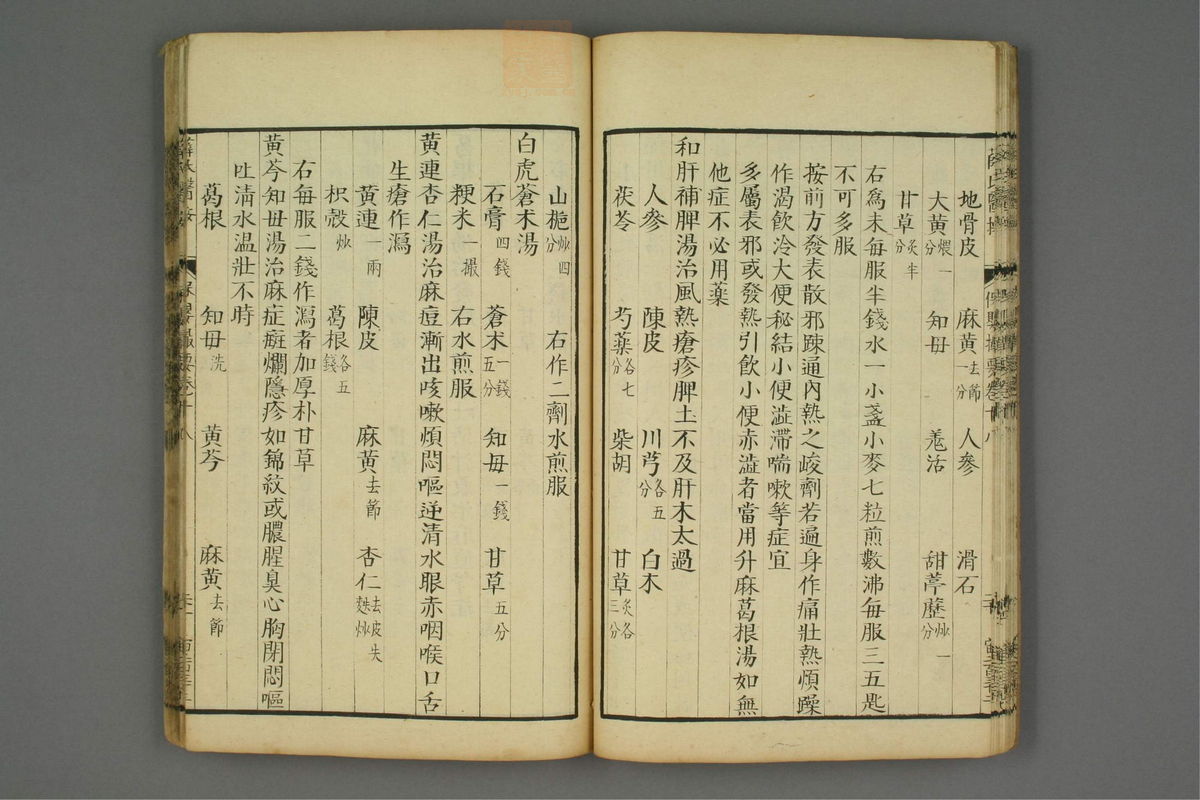 地骨皮　麻黃去節一分　人參　滑石
大黃煨一分　知母　羗活　甜葶藶炒一分
甘草炙半分
右爲末每服半錢水一小盞小麥七粒煎數沸每服三五匙
不可多服
按前方發表散邪踈通內熱之峻劑若遍身作痛壯熱煩躁
作渴飲冷大便秘結小便澁滯喘嗽等症宜
多屬表邪或發熱引飲小便赤澁者當用升麻葛根湯如無
他症不必用藥
和肝補脾湯治風熱瘡疹脾土不及肝木太過
人參　陳皮　川芎各五分　白术
茯苓　芍藥各七分　柴胡　甘草炙各三分
山梔炒四分　右作二劑水煎服
白虎蒼术湯
石膏四錢　蒼术一錢五分　知母一錢　甘草五分
粳米一撮　右水煎服
黃連杏仁湯治麻痘漸出咳嗽煩悶嘔逆清水眼赤咽喉口舌
生瘡作瀉
黃連一兩　陳皮　麻黃去節　杏仁去皮尖麩炒
枳殼炒　葛根各五錢
右每服二錢作瀉者加厚朴甘草
黃芩知母湯治麻症癍爛隱疹如錦紋或膿腥臭心胸閉悶嘔
吐清水温壯不時
葛根　知母洗　黃芩　麻黃去節